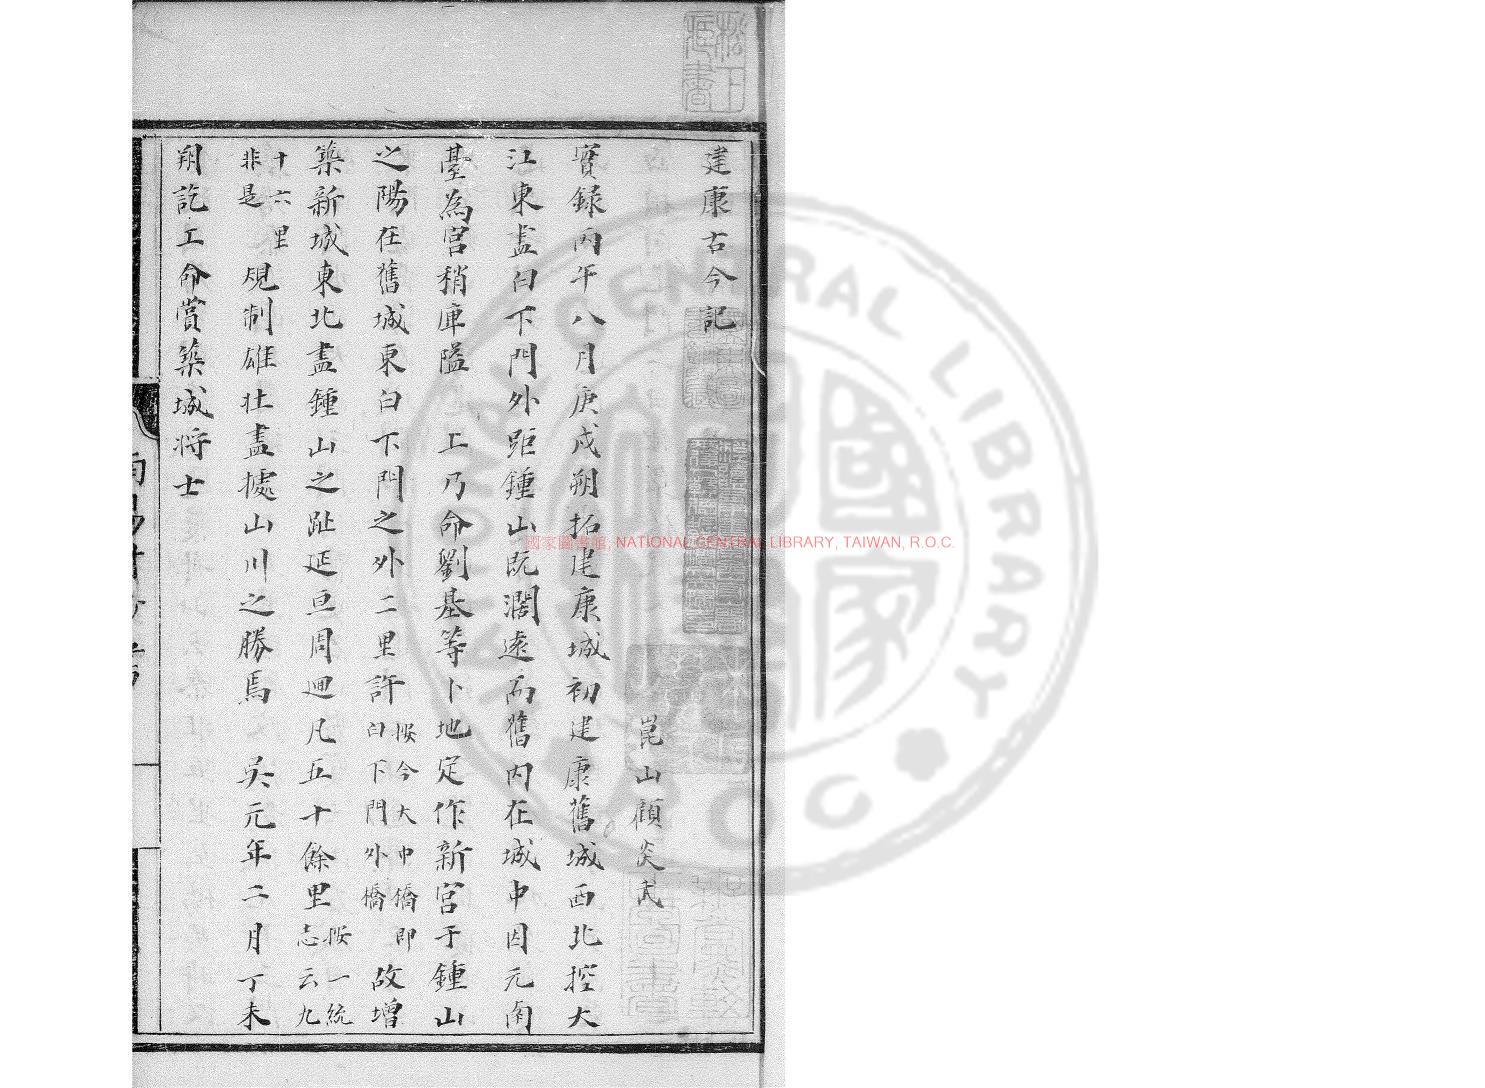 建康古今記
崑山顧炎武
實録丙午八月庚戌朔拓建康城初建康舊城西北控大
江東盡白下門外距鍾山既濶遠而舊内在城中因元南
臺為宮稍庳隘　上乃命劉基等卜地定作新宮于鍾山
之陽在舊城東白下門之外二里許按今大中橋即白下門外橋故增
築新城東北盡鍾山之趾延亘周迴凡五十餘里按一統志云九
十六里非是規制雄壯盡據山川之勝焉　吳元年二月丁未
朔訖工命賞築城将士
松下藏書
國家圖書館, NATIONAL CENTRAL LIBRARY, TAIWAN, R.O.C.
NATIONAL CENTRAL LIBRARY
ROC
國家